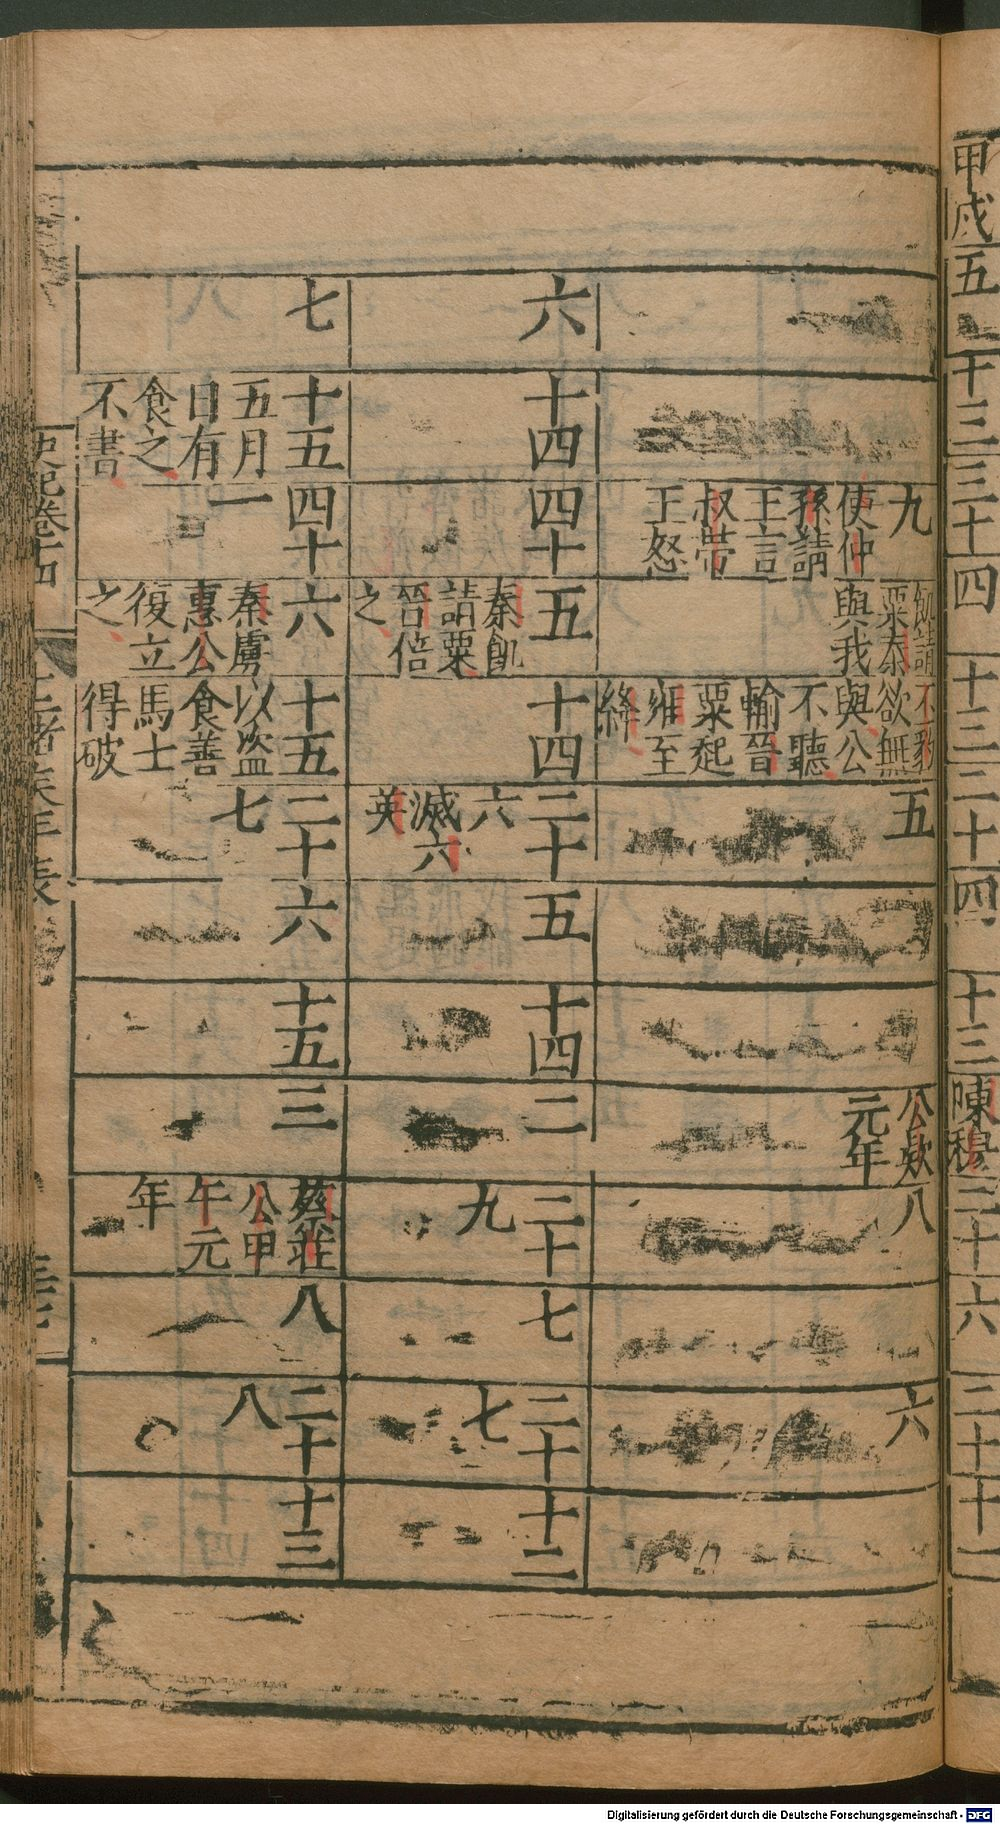 甲戌
五
十三
三十四
十三
二十四
十三
陳穆
三十六
二十
十一
九
使仲
孫請
王言
叔帶
王怒
飢請
粟秦
與我
丕豹
欲無
與公
不聽
輸晉
粟起
雍至
絳
五
公款
元年
八
六
六
十四
四十
五
秦飢
請粟
晉倍
之
十四
二十
六
滅六
英
五
十四
二
二十
九
七
二十
七
十二
七
十五
五月
日有
食之
不書
四十
一
六
秦虜
惠公
復立
之
十五
以盜
食善
馬士
得破
二十
七
六
十五
三
蔡莊
公甲
午元
年
八
二十
八
十三
史記卷十四
Digitalisierung gefördert durch die Deutsche Forschungsgemeinschaft - DFG